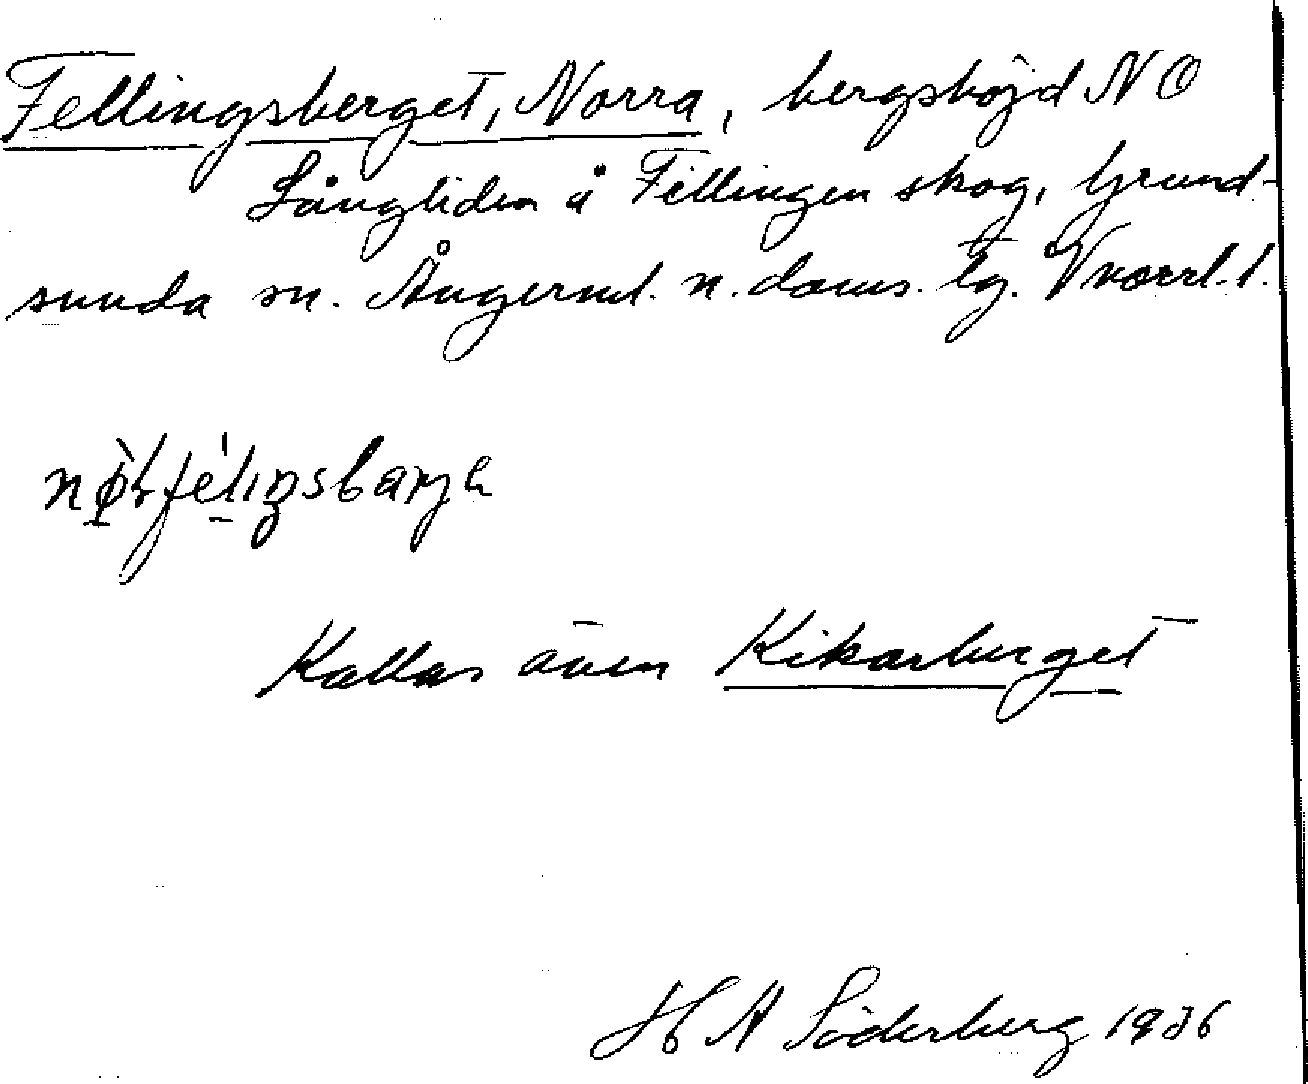 Fellingsberget, Norra, bergshöjd NO
Långliden å Fellingen skog, Grund-
sunda sn. Ångerml. n. doms. lg. Vnorrl. l.
Kallas även Kikarberget
H A Söderberg 1936